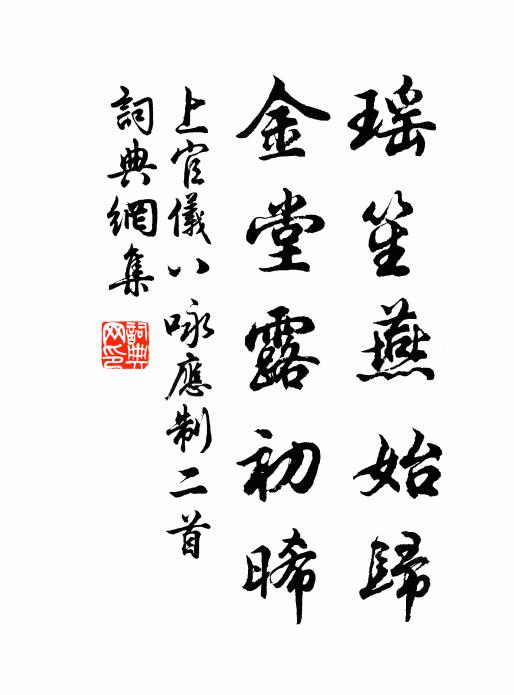 瑶笙燕始歸
金堂露初晞
上官儀八咏應制二首
詞典網集
詞典網印